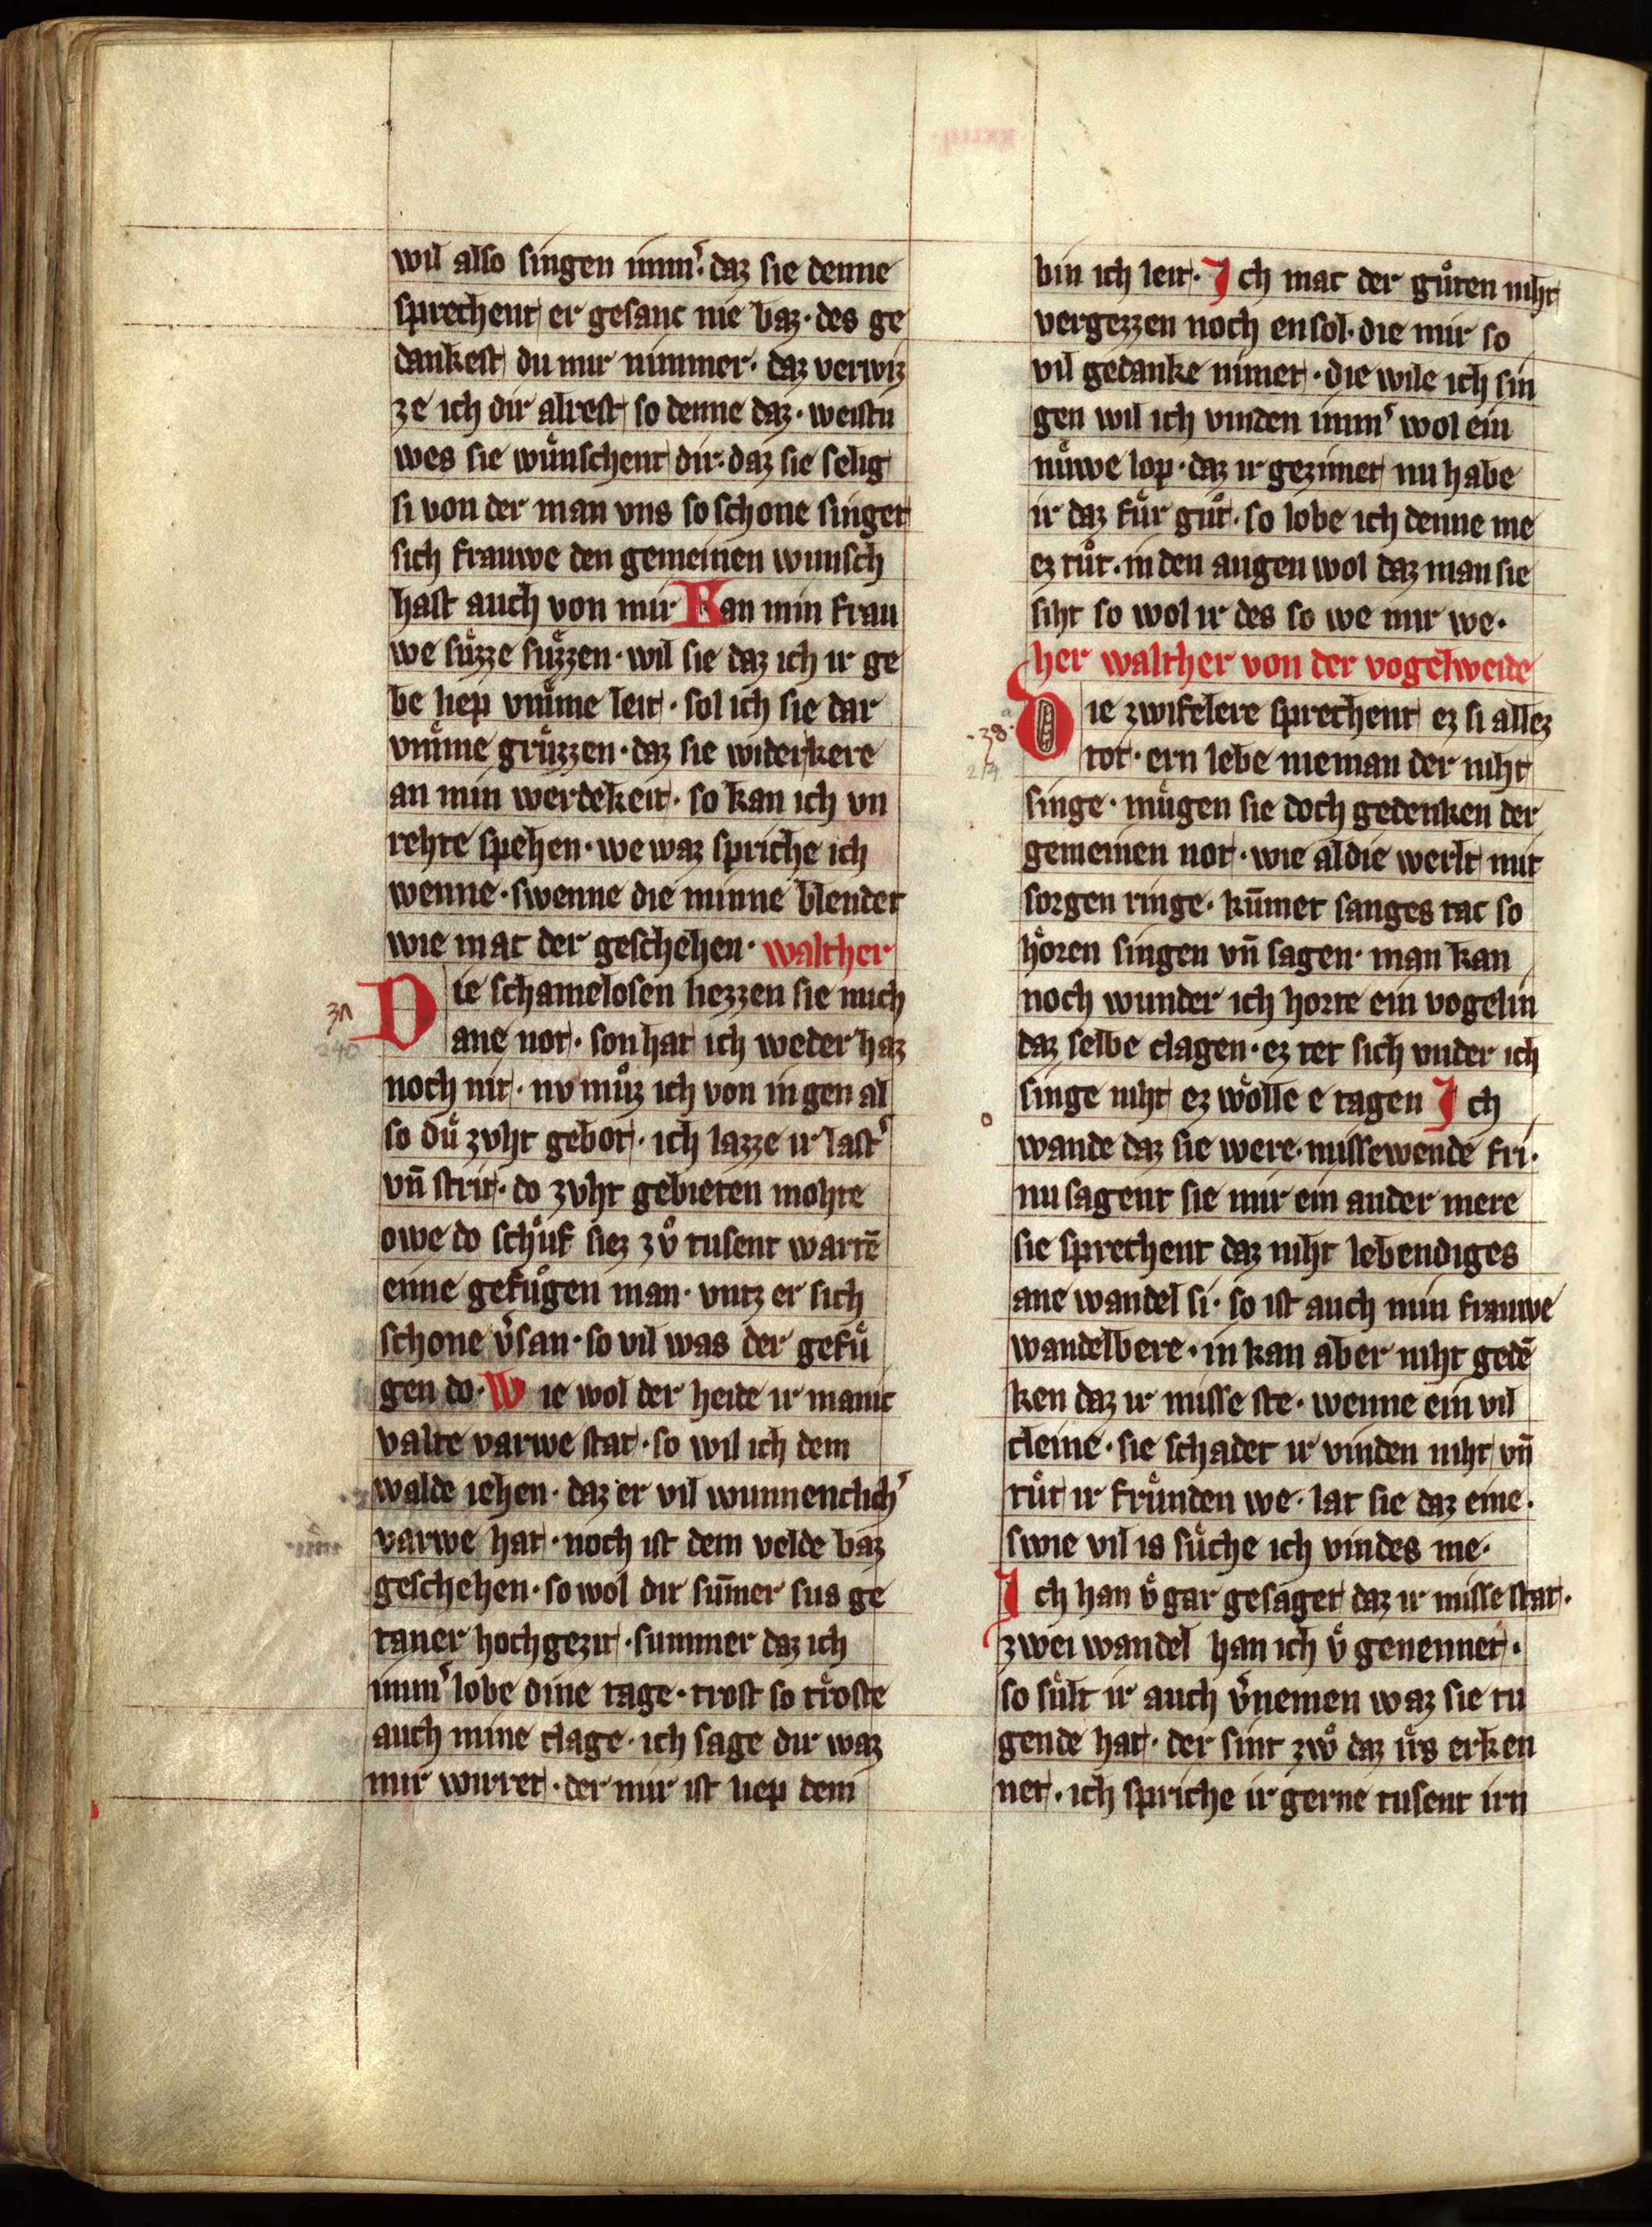 wil also singen imm͛. daz sie denne
sprechent er gesanc nie baz. des ge
dankest du mir nimmer. daz verwiz
ze ich dir alrest so denne daz. weistu
wes sie wuͤnschent dir. daz sie selig
si von der man vns so schone singet
sich frauwe den gemeinen wunsch
hast auch von mir Kan min frau
we suͤzze suͤzzen. wil sie daz ich ir ge
be liep vmͤme leit. sol ich sie dar
vmͤme gruͤzzen. daz sie widerkere
an min werdekeit. so kan ich vn
rehte spehen. we waz spriche ich
wenne. swenne die minne blendet
wie mac der geschehen. walther
Die schamelosen liezzen sie mich
ane not. son hat ich weder haz
noch nit. nv muͦz ich von in gen al
so duͤ zvht gebot. ich lazze ir last͛
vn̄ strit. do zvht gebieten mohte
owe do schuͦf siez zvͦ tusent warrē
enne gefuͦgen man. vntz er sich
schone v͛san. so vil was der gefuͤ
gen do. Wie wol der heide ir manic
valte varwe stat. so wil ich dem
walde iehen. daz er vil wunnenclich͛
varwe hat. noch ist dem velde baz
geschehen. so wol dir sum̄er sus ge
taner hochgezit. summer daz ich
imm͛ lobe dine tage. trost so troͤste
auch mine clage. ich sage dir waz
mir wirret. der mir ist liep dem
bin ich leit. Ich mac der guͦten niht
vergezzen noch ensol. die mir so
vil gedanke nimet. die wile ich sin
gen wil ich vinden imm͛ wol ein
nuͤwe lop. daz ir gezimet nu habe
ir daz fuͤr guͦt. so lobe ich denne me
ez tuͦt. in den augen wol daz man sie
siht so wol ir des so we mir we.
her walther von der vogelweide
Die zwifelere sprechent ez si allez
tot. ern lebe nieman der niht
singe. muͤgen sie doch gedenken der
gemeinen not. wie al die werlt mit
sorgen ringe. kum̄et sanges tac so
hoͤren singen vn̄ sagen. man kan
noch wunder ich horte ein vogelin
daz selbe clagen. ez tet sich vnder ich
singe niht ez woͤlle e tagen Ich
wande daz sie were. missewende fri.
nu sagent sie mir ein ander mere
sie sprechent daz niht lebendiges
ane wandel si. so ist auch min frauwe
wandelbere. in kan aber niht gedē
ken daz ir misse ste. wenne ein vil
cleine. sie schadet ir vinden niht vn̄
tuͦt ir fruͤnden we. lat sie daz eine.
swie vil is suͦche ich vindes me.
Ich han vͤ gar gesaget daz ir misse stat.
zwei wandel han ich vͤ genennet.
so suͤlt ir auch v͛nemen waz sie tu
gende hat. der sint zwo daz irs erken
net. ich spriche ir gerne tusent irn